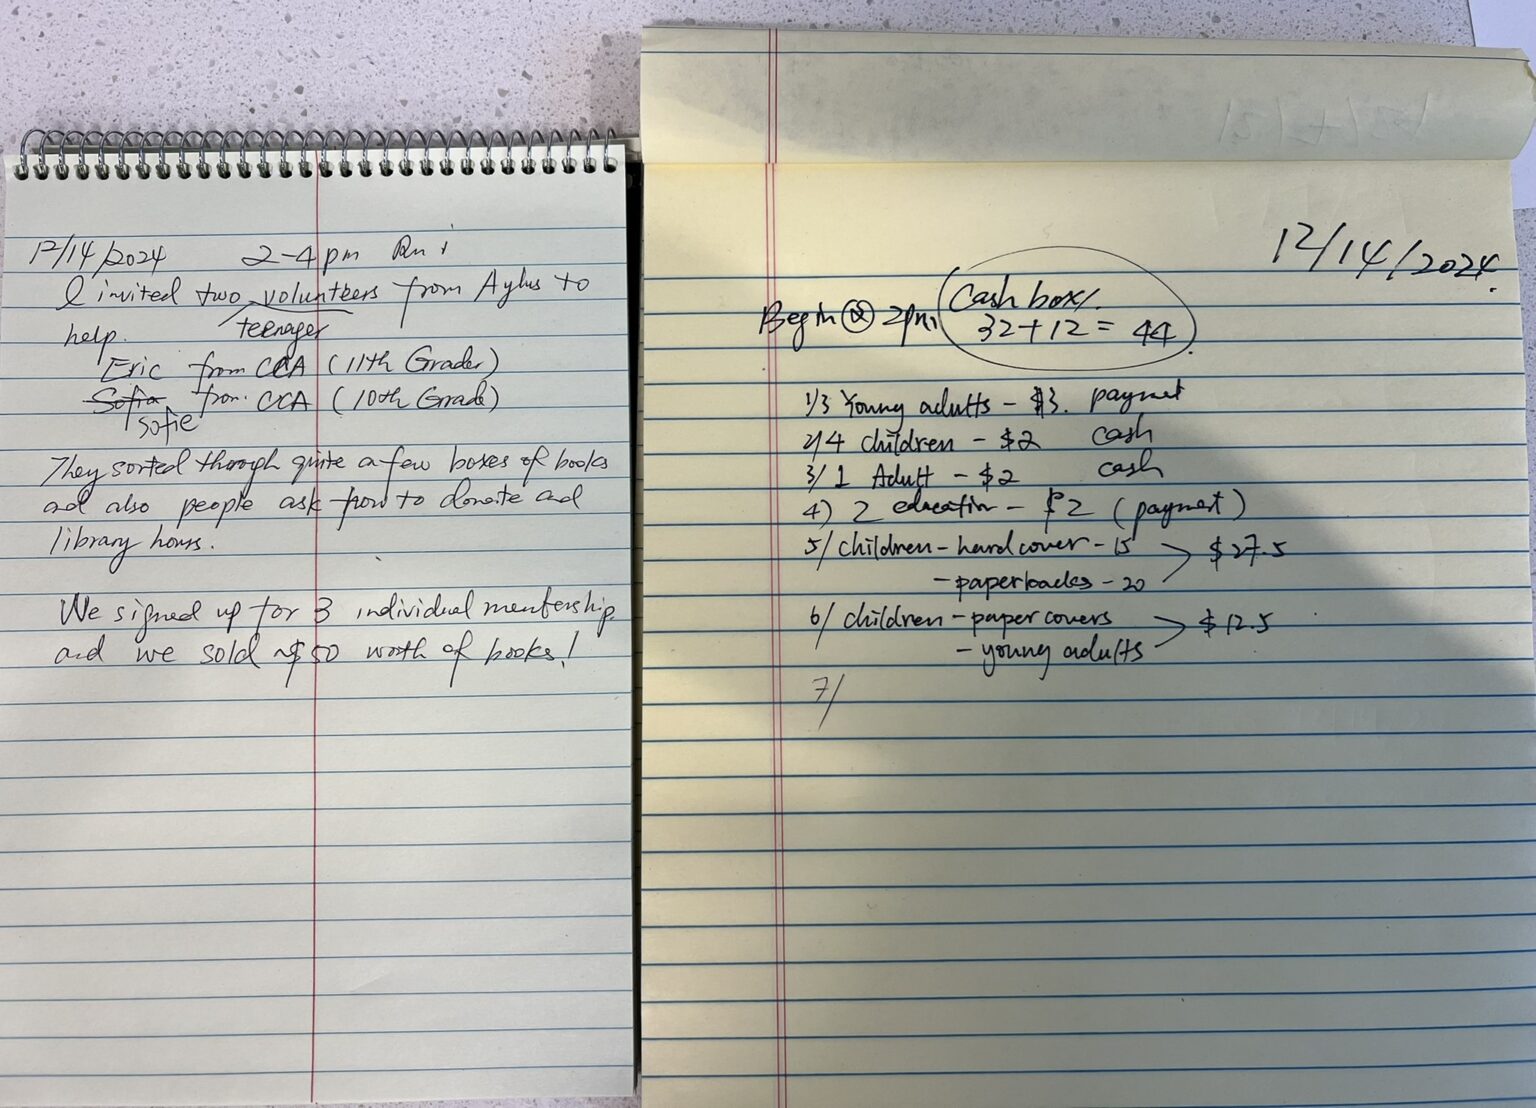 12/14/2024 2-4pm
I invited two volunteers from Aylus to
teenager
help.
Eric from CCA (11th Grader)
Sofia from CCA (10th Grade)
Sofie
They sorted through quite a few boxes of books
and also people ask how to donate and
library hours.
We signed up for 3 individual membership
and we sold ~$50 worth of books!
12/14/2024.
Cash box/.
Begin @ 2pm 32+12 = 44.
1/3 Young adults - $3. paymet
2/4 children - $2 cash
3/1 Adult - $2 cash
4) 2 education - $2 (paymet)
5/ children - hardcover - 15 > $27.5
- paperbacks - 20
6/ children - paper covers > $12.5
- young adults
7/